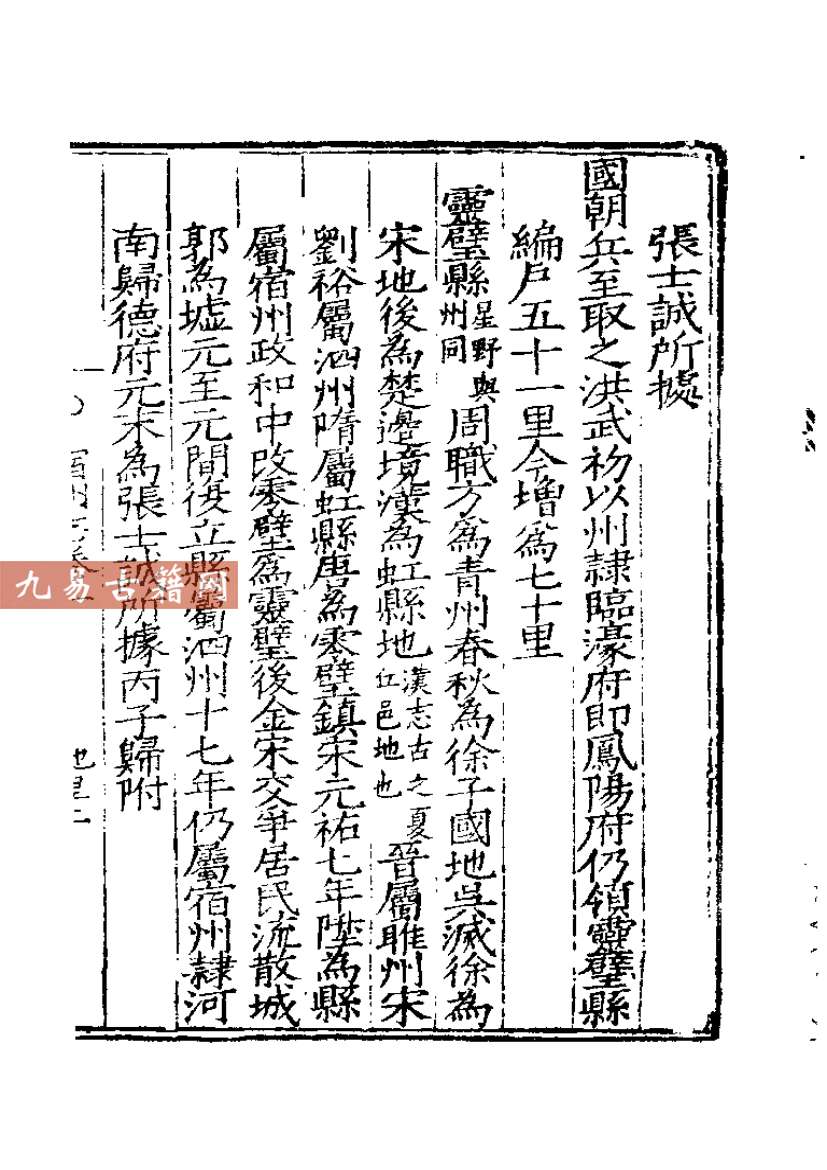 張士誠所據
國朝兵至取之洪武初以州隷臨濠府即鳳陽府仍領靈璧縣
編戶五十一里今增爲七十里
靈璧縣星野與州同周職方爲青州春秋爲徐子國地吳滅徐爲
宋地後爲楚邊境漢爲虹縣地漢志古之夏丘邑地也晉屬睢州宋
劉裕屬泗州隋屬虹縣唐爲零壁鎮宋元祐七年陞爲縣
屬宿州政和中改零壁爲靈壁後金宋交爭居民流散城
郭爲墟元至元間復立縣屬泗州十七年仍屬宿州隷河
南歸德府元末爲張士誠所據丙子歸附
九易古籍网